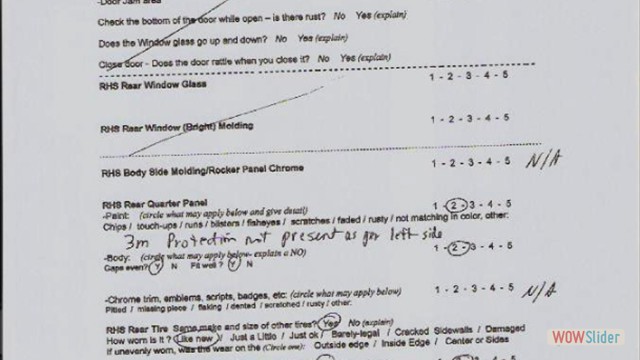 -Door Jam area
Check the bottom of the door while open – is there rust? No Yes (explain)
Does the Window glass go up and down? No Yes (explain)
Close door - Does the door rattle when you close it? No Yes (explain)
RHS Rear Window Glass 1 - 2 - 3 - 4 - 5
RHS Rear Window (Bright) Molding 1 - 2 - 3 - 4 - 5
RHS Body Side Molding/Rocker Panel Chrome 1 - 2 - 3 - 4 - 5 N/A
RHS Rear Quarter Panel 1 - 2 - 3 - 4 - 5
-Paint: (circle what may apply below and give detail)
Chips / touch-ups / runs / blisters / fisheyes / scratches / faded / rusty / not matching in color, other:
3m Protection not present as for left side
-Body: (circle what may apply below- explain a NO) 1 - 2 - 3 - 4 - 5
Gaps even? Y N Fit well? Y N
-Chrome trim, emblems, scripts, badges, etc: (circle what may apply below) 1 - 2 - 3 - 4 - 5 N/A
Pitted / missing piece / flaking / dented / scratched / rusty / other:
RHS Rear Tire Same make and size of other tires? Yes No (explain)
How worn is it? Like new / Just a Little / Just ok / Barely-legal / Cracked Sidewalls / Damaged
If unevenly worn, was the wear on the (Circle one): Outside edge / Inside Edge / Center or Sides
WOWSlider